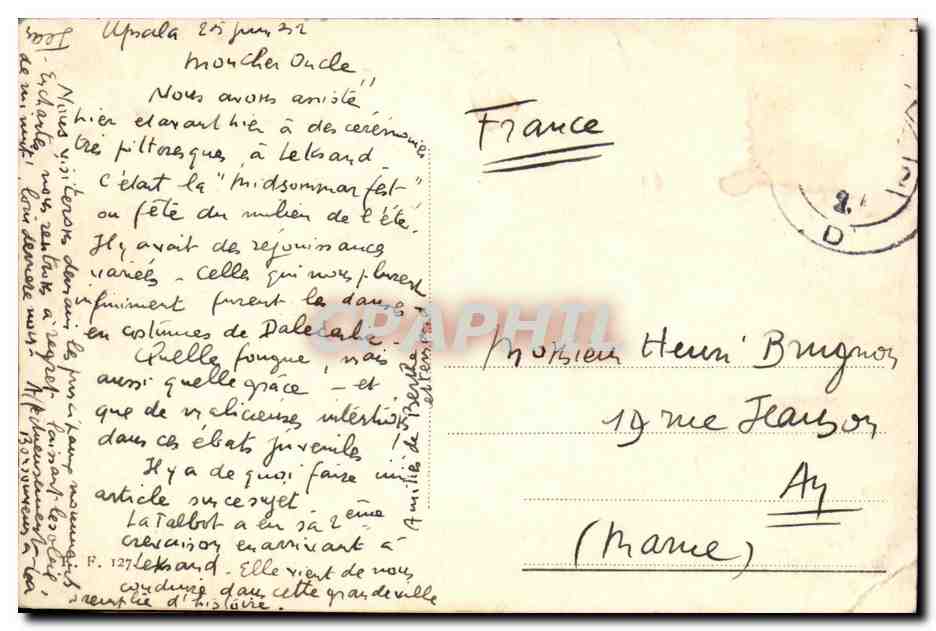 Upsala 25 juin 52
Mon cher Oncle,
Nous avons assisté
hier et avant hier à des cérémonies
très pittoresques, à Leksand
C'était la "Midsommarfest"
ou fête du milieu de l'été.
Il y avait des réjouissances
variées - Celles qui nous plurent
infiniment furent les danses
en costumes de Dalécarlie -
Quelle fougue, mais
aussi quelle grâce, - et
que de malicieuses intentions
dans ces ébats juvéniles !
Il y a de quoi faire un
article sur ce sujet -
La Talbot a eu sa 2ème
crevaison en arrivant à
Leksand - Elle vient de nous
conduire dans cette grande ville
remplie d'histoire.
F. 127
Nous visiterons demain les principaux monuments
- Enchantés, nous rentrons à regret, laissant le soleil
de minuit loin derrière nous !
Jean
Amitiés de Berthe
France
D
Monsieur Henri Brugnon
19 rue Jeanson
Ay
(Marne)
CPAPHIL